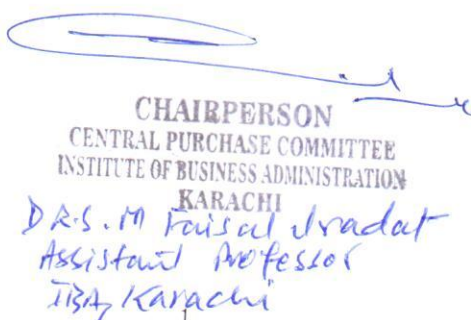 CHAIRPERSON
CENTRAL PURCHASE COMMITTEE
INSTITUTE OF BUSINESS ADMINISTRATION
KARACHI
DR.S. M Faisal Iradat
Assistant Professor
IBA, Karachi
1